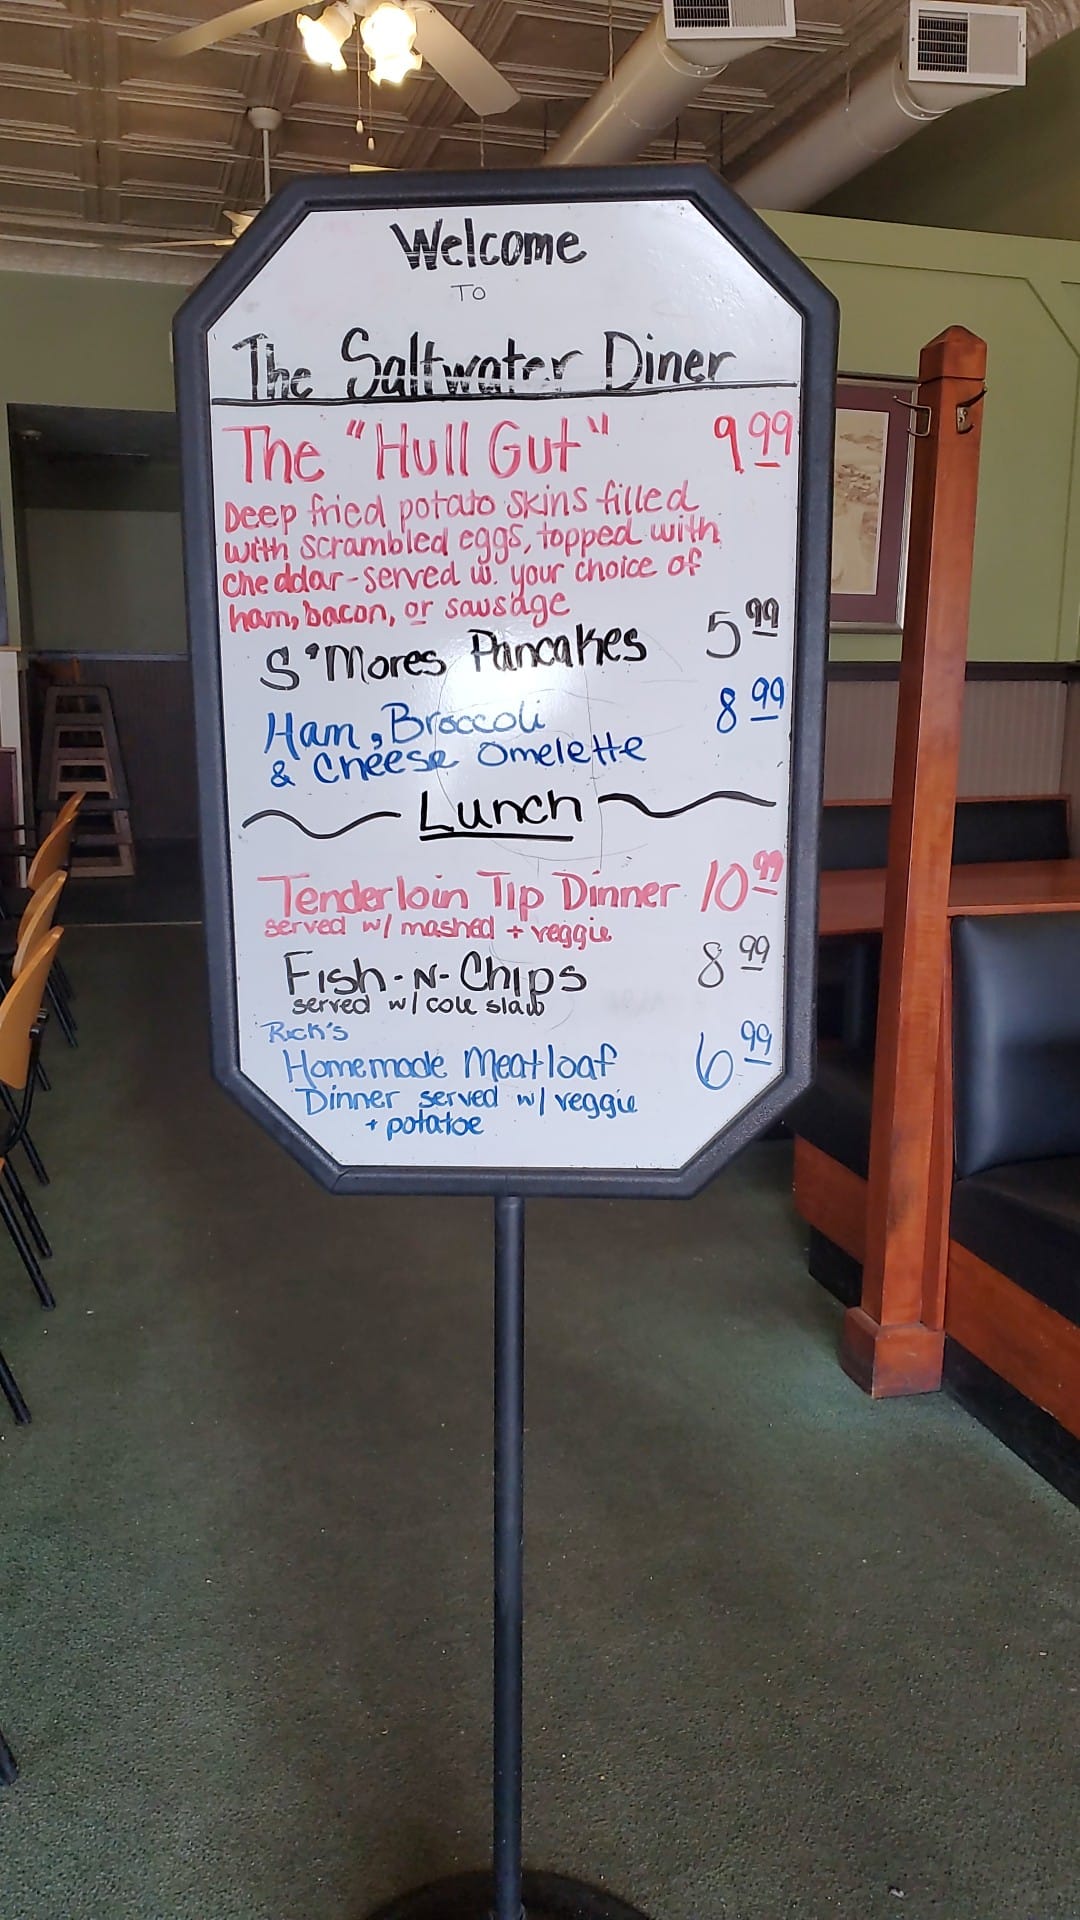 Welcome
TO
The Saltwater Diner
The "Hull Gut" 9 99
Deep fried potato skins filled
with scrambled eggs, topped with
cheddar - served w. your choice of
ham, bacon, or sausage
S'Mores Pancakes 5 99
Ham, Broccoli 8 99
& Cheese Omelette
Lunch
Tenderloin Tip Dinner 10 99
served w/ mashed + veggie
Fish-N-Chips 8 99
served w/ cole slaw
Rick's
Homemade Meatloaf 6 99
Dinner served w/ veggie
+ potatoe